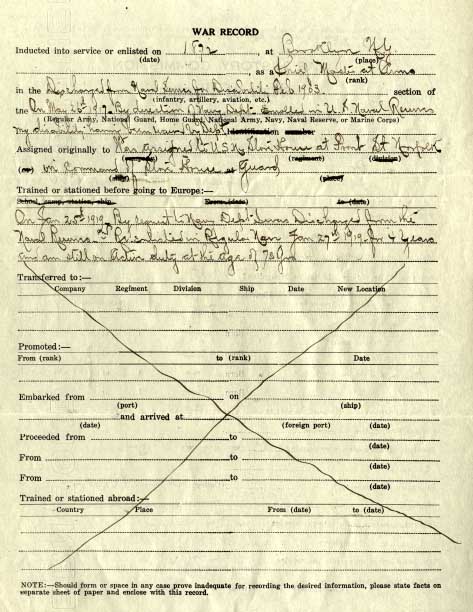 WAR RECORD
Inducted into service or enlisted on 1892, at Brooklyn N.Y.
(date) (place)
as a Chief Master at Arms
(rank)
in the Discharged from Naval Service for Disability Feb 1903. section of
(infantry, artillery, aviation, etc.)
the On May 26th 1917. By direction of Navy Dept Enrolled in U.S. Naval Reserves
(Regular Army, National Guard, Home Guard, National Army, Navy, Naval Reserve, or Marine Corps)
my disability having been by Dept. identification number
Assigned originally to Was assigned to U.S.N. House at Front St Norfolk
(company) (regiment) (division)
(or) in Command of House Guard
(ship) (place)
Trained or stationed before going to Europe:—
School, camp, station, ship From (date) to (date)
On Jan 25th 1919. By request to Navy Dept. Discharged from the
Naval Reserves and Re enlisted in Regular Navy Jan 27th 1919 for 4 years
am still on active duty at the age of 73 yrs
Transferred to:—
Company Regiment Division Ship Date New Location
Promoted:—
From (rank) to (rank) Date
Embarked from on
(port) (ship)
and arrived at
(date) (foreign port) (date)
Proceeded from to
(date)
From to
(date)
From to
(date)
Trained or stationed abroad:—
Country Place From (date) to (date)
NOTE:—Should form or space in any case prove inadequate for recording the desired information, please state facts on
separate sheet of paper and enclose with this record.